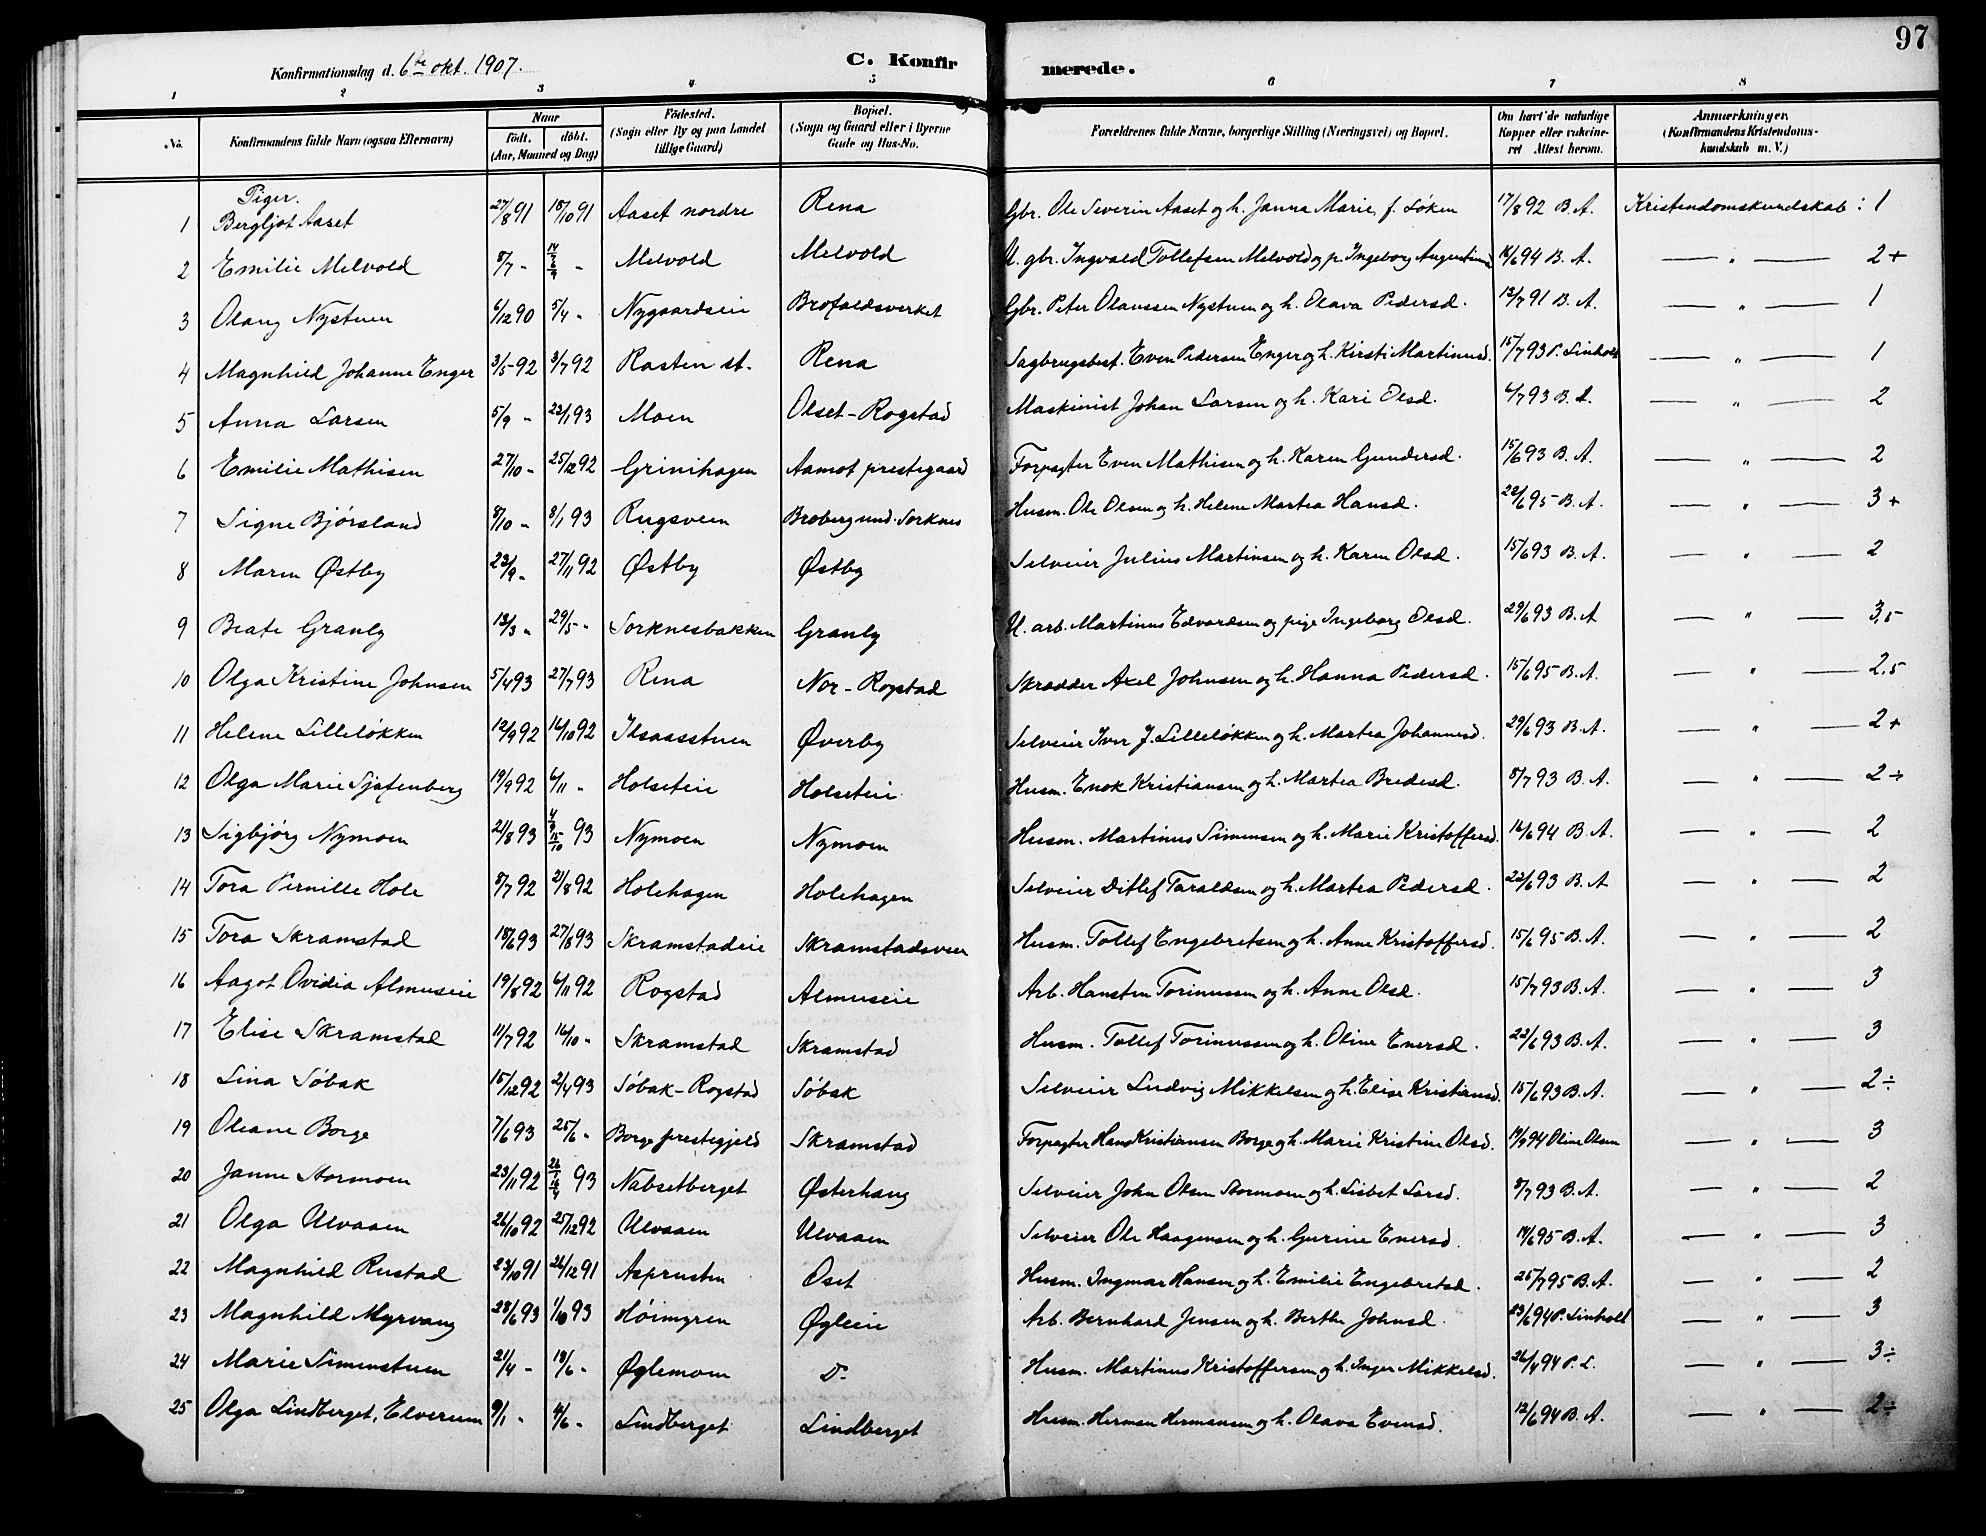 97
Konfirmationsdag d. 6te okt. 1907.
C. Konfirmerede.
1 2 3 4 5 6 7 8
No. Konfirmandens fulde Navn (ogsaa Efternavn) Naar født. døbt. (Aar, Maaned og Dag) Fødested. (Sogn eller By og paa Landet tillige Gaard) Bopæl. (Sogn og Gaard eller i Byerne Gade og Hus-No. Forældrenes fulde Navne, borgerlige Stilling (Næringsvei) og Bopæl. Om havt de naturlige Kopper eller vakcineret Attest herom. Anmærkninger. (Konfirmandens Kristendomskundskab m. V.)
Piger.
1 Bergljot Aaset 27/8 91 18/10 91 Aaset nordre Rena Gbr. Ole Severin Aaset og h. Janna Marie, f. Løken 17/8 92 B. A. Kristendomskundskab : 1
2 Emilie Melvold 8/7 - - Melvold Melvold U. gbr. Ingvald Tollefsen Melvold og p. Ingeborg Augustinusd 16/6 94 B. A. — " — 2+
3 Olaug Nystuen 6/12 90 5/4 - Nygaardseie Brofaldsverket Gbr. Peter Olaussen Nystuen og h. Olava Pedersd. 13/7 91 B. A. — " — 1
4 Magnhild Johanne Enger 3/5 92 3/7 92 Rasten st. Rena Sagbrugsbest. Even Pedersen Enger og h. Kirsti Martinusd. 15/7 93 P. Linholt — " — 1
5 Anna Larsen 5/9 - 23/1 93 Moen Olset-Rogstad Maskinist Johan Larsen og h. Kari Olsd. 6/7 93 B. A. — " — 2
6 Emilie Mathisen 27/10 - 25/12 92 Grinihagen Aamot prestegaard Forpagter Even Mathisen og h. Karen Gundersd. 15/6 93 B. A. — " — 2
7 Signe Bjørsland 8/10 - 8/1 93 Rugsveen Broberg und. Sorknes Husm. Ole Olsen og h. Helene Martea Hansd. 22/6 95 B. A. — " — 3+
8 Maren Østby 23/9 - 27/11 92 Østby Østby Selveier Julius Martinsen og h. Karen Olsd. 15/6 93 B. A. — " — 2
9 Beate Granly 13/3 - 29/5 - Sorknesbakken Granly U. arb. Martinus Edvardsen og pige Ingeborg Olsd. 29/6 93 B. A — " — 3,5
10 Olga Kristine Johnsen 5/4 93 27/7 93 Rena Nor-Rogstad Skrædder Axel Johnsen og h. Hanna Pedersd. 15/6 95 B. A. — " — 2,5
11 Helene Lilleløkken 12/9 92 16/10 92 Ilsaasstuen Øverby Selveier Iver J. Lilleløkken og h. Martea Johannesd. 29/6 93 B. A. — " — 2+
12 Olga Marie Sjøfenberg 19/9 92 6/11 - Holseteie Holseteie Husm. Enok Kristiansen og h. Martea Bredesd. 8/7 93 B. A. — " — 2÷
13 Sigbjørg Nymoen 21/8 93 93 Nymoen Nymoen Husm. Martinus Simensen og h. Marie Kristoffersd. 16/6 94 B. A. — " — 2
14 Tora Pernille Hole 8/7 92 21/8 92 Holehagen Holehagen Selveier Ditlef Taraldsen og h. Martea Pedersd. 22/6 93 B. A — " — 2
15 Tora Skramstad 18/6 93 27/8 93 Skramstadeie Skramstadsveen Husm. Tollef Engebretsen og h. Anne Kristoffersd. 15/6 95 B. A. — " — 2
16 Aagot Ovidia Almuseie 19/8 92 6/11 92 Rogstad Almuseie Arb. Hansten Torinussen og h. Anne Olsd. 15/7 93 B. A. — " — 3
17 Elise Skramstad 11/7 92 16/10 - Skramstad Skramstad Husm. Tollef Torinussen og h. Oline Enersd. 22/6 93 B. A. — " — 3
18 Lina Søbak 15/12 92 2/4 93 Søbak-Rogstad Søbak Selveier Ludvig Mikkelsen og h. Elise Kristiansd. 15/6 93 B. A. — " — 2÷
19 Oleane Borge 7/6 93 25/6 - Borge prestegjeld Skramstad Forpagter Hans Kristiansen Borge og h. Marie Kristine Olsd. 19/9 94 Oline Olsen — " — 3
20 Janne Stormoen 23/11 92 93 Nabsetberget Østerhaug Selveier John Olsen Stormoen og h. Lisbet Larsd. 8/7 93 B. A. — " — 2
21 Olga Ulvaaen 26/10 92 25/12 92 Ulvaaen Ulvaaen Selveier Ole Haagensen og h. Gurine Enersd. 14/6 95 B. A. — " — 3
22 Magnhild Rustad 23/10 91 26/12 91 Asprusten Oset Husm. Ingmar Hansen og h. Emilie Engebretsd. 25/7 95 B. A. — " — 2
23 Magnhild Myrvang 28/6 93 1/10 93 Høimyren Øgleie Arb. Bernhard Jensen og h. Berthe Johnsd. 23/6 94 P. Linholt — " — 3
24 Marie Simenstuen 21/4 - 18/6 - Øglemoen D. Husm. Martinus Kristoffersen og h. Inger Mikkelsd. 26/4 94 P. L. — " — 3÷
25 Olga Lindberget, Elverum 9/1 - 4/6 - Lindberget Lindberget Husm. Herman Hermansen og h. Olava Evensd. 12/6 94 B. A. — " — 2÷